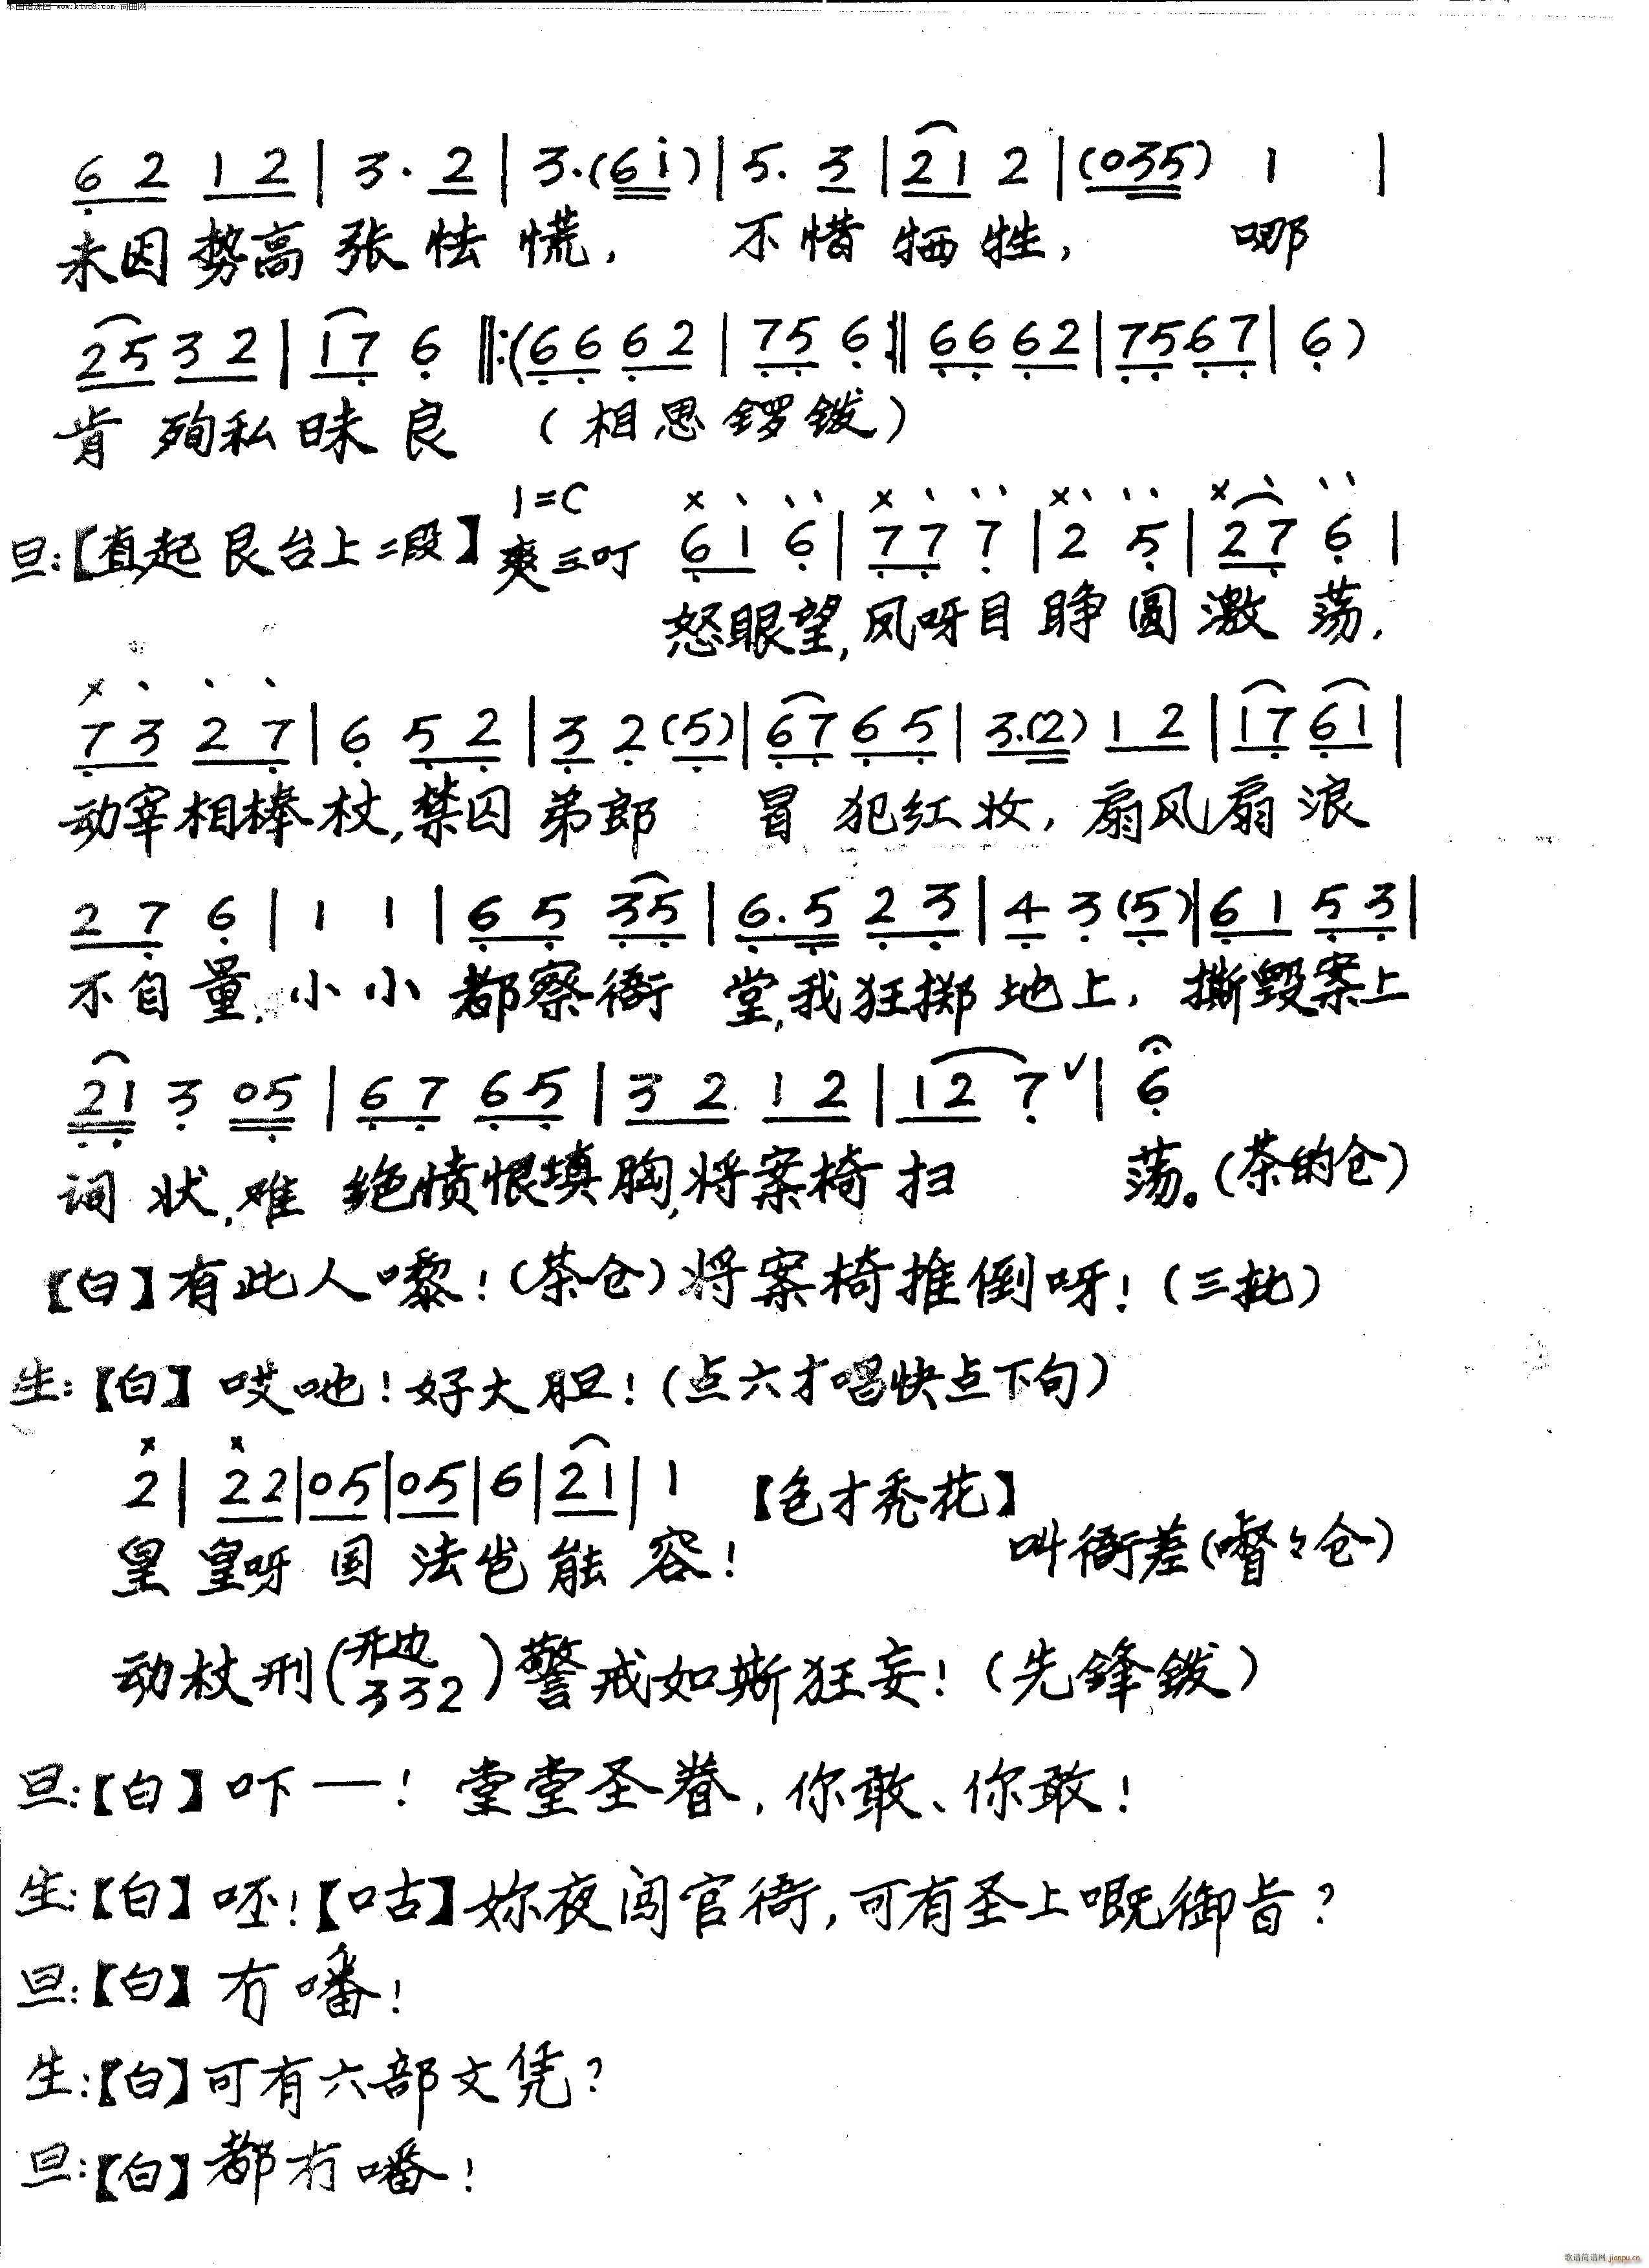 本曲谱源自 www.ktvc8.com 词曲网
6 2 1 2 | 3 · 2 | 3·(6 i) | 5. 3 | 2 1 2 | (035) 1 |
未因势高张怯慌, 不惜牺牲, 哪
2 5 3 2 | 1 7 6 ‖:(6 6 6 2 | 7 5 6 :‖ 6 6 6 2 | 7 5 6 7 | 6)
肯殉私昧良 (相思锣鈸)
旦:【直起艮台上二段】1=C 爽三叮 6 1 6 | 7 7 7 | 2 5 | 2 7 6 |
怒眼望,凤呀目睁圆激荡,
7 3 2 7 | 6 5 2 | 3 2 (5) | 6 7 6 5 | 3.(2) 1 2 | 1 7 6 1 |
动宰相棒杖,禁囚弟郎 冒犯红妆, 扇风扇浪
2 7 6 | 1 1 | 6 5 3 5 | 6. 5 2 3 | 4 3 (5) | 6 1 5 3 |
不自量,小小都察衙堂,我狂掷地上, 撕毁案上
2 1 3 0 5 | 6 7 6 5 | 3 2 1 2 | 1 2 7 ∨ | 6
词状,难绝愤恨填胸,将案椅扫荡。(茶的仓)
【白】有此人嚟!(茶仓)将案椅推倒呀!(三批)
生:【白】哎吔!好大胆!(点六才唱快点下句)
2 | 2 2 | 0 5 | 0 5 | 6 | 2 1 | 1 【包才秃花】
皇皇呀国法岂能容! 叫衙差(嘟々仓)
动杖刑(开边 3 3 2)警戒如斯狂妄!(先锋鈸)
旦:【白】吓一! 堂堂圣眷, 你敢、你敢!
生:【白】呸!【咕】妳夜闯官衙,可有圣上嘅御旨?
旦:【白】冇噃!
生:【白】可有六部文凭?
旦:【白】都冇噃!
歌谱简谱网 jianpu.cn